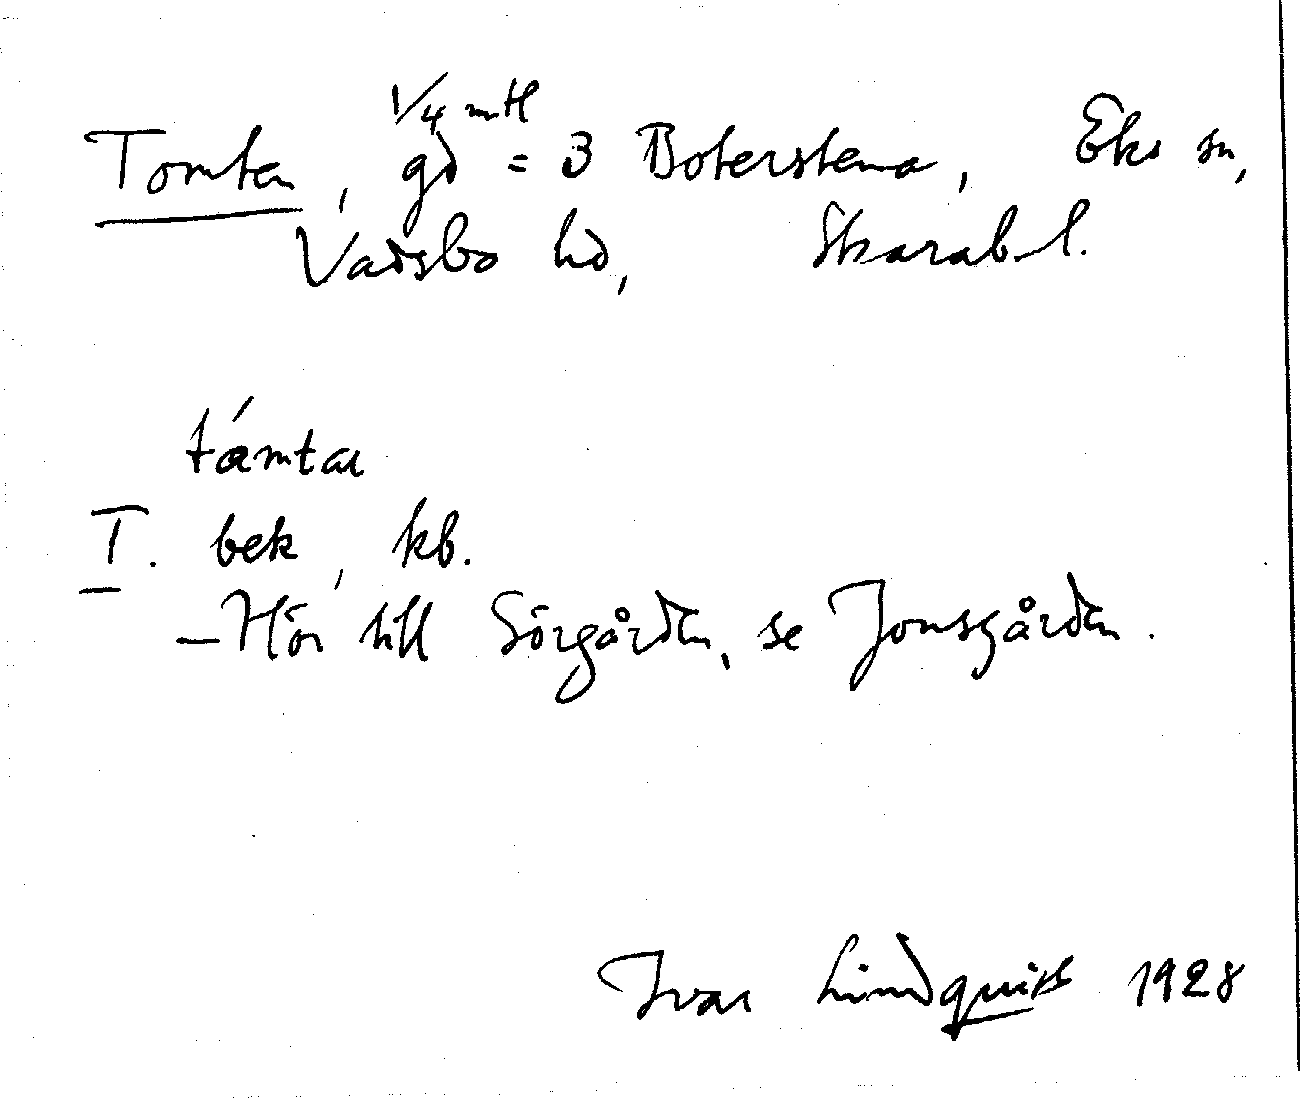 Tomten, 1/4 mtl gd = 3 Boterstena, Eks sn,
Vadsbo hd, Skarab. l.
támtaɩ
T. bek, kb.
– Hör till Sörgården, se Jonsgården.
Ivar Lindquist 1928